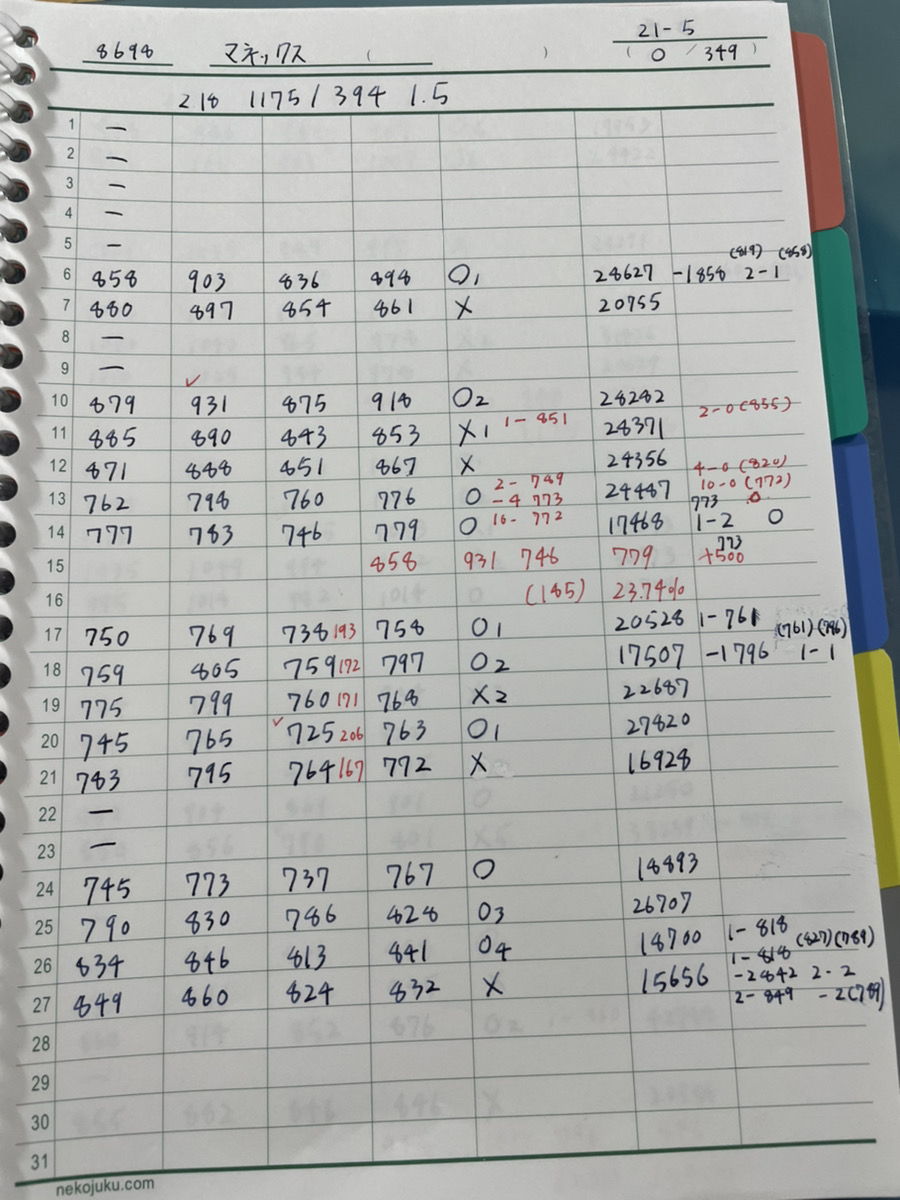 21-5
8698 マネックス ( ) ( 0 / 349 )
218 1175 / 394 1.5
1 —
2 —
3 —
4 —
5 —
(819) (858)
6 858 903 836 898 O1 28627 -1858 2-1
7 880 897 854 861 X 20755
8 —
9 —
✓
10 879 931 875 918 O2 28282
11 885 890 843 853 X1 1-851 28371 2-0(855)
12 871 888 851 867 X 24356 4-0(820)
2-789 10-0(772)
13 762 798 760 776 O -4 773 24487 773 0
14 777 783 746 779 O 10-772 17468 1-2 O
773
15 858 931 746 779 +500
16 (185) 23.74%
17 750 769 738 193 758 O1 20528 1-761
(761)(796)
18 759 805 759 172 797 O2 17507 -1796 1-1
19 775 799 760 171 768 X2 22687
20 745 765 ✓725 206 763 O1 27820
21 783 795 764 167 772 X 16928
22 —
23 —
24 745 773 737 767 O 18893
25 790 830 786 828 O3 26707
1-818
26 834 846 813 841 O4 18700 (827)(789)
1-818
-2842 2-2
27 849 860 824 832 X 15656 2-849 -2(789)
28
29
30
31
nekojuku.com